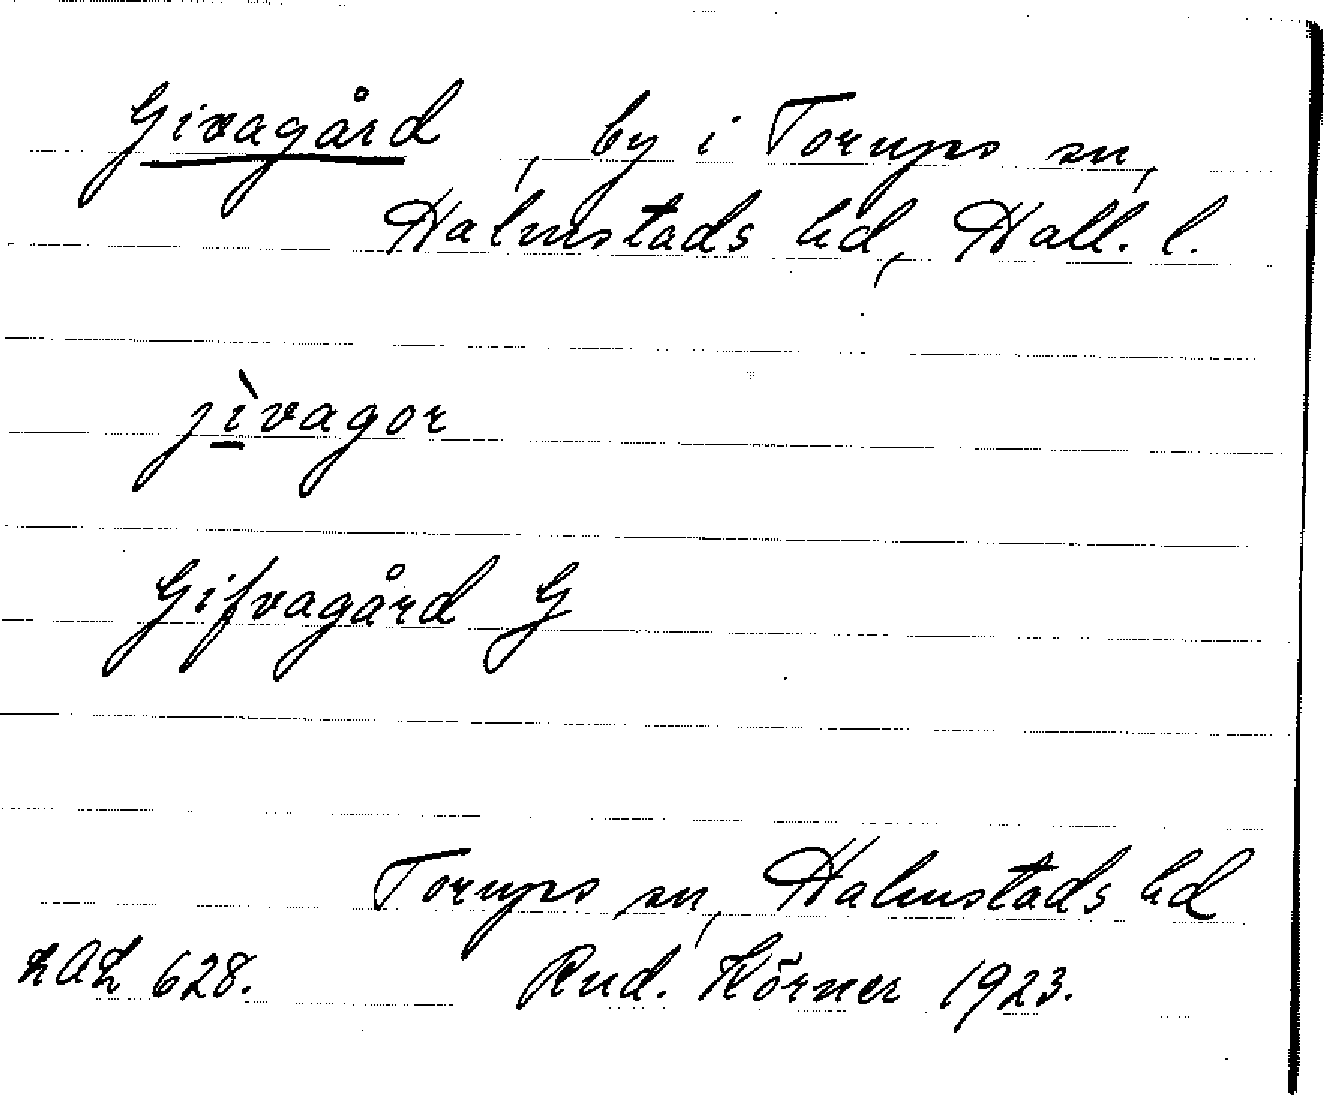 Givagård, by i Torups sn,
Halmstads hd, Hall. l.
jìvagor
Gifvagård G
Torups sn, Halmstads hd
LAL 628. Rud. Körner 1923.